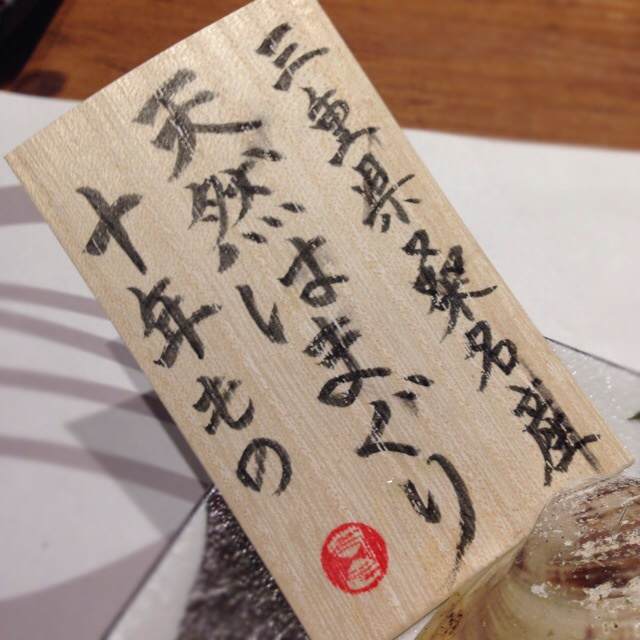 三重県桑名産
天然はまぐり
十年もの